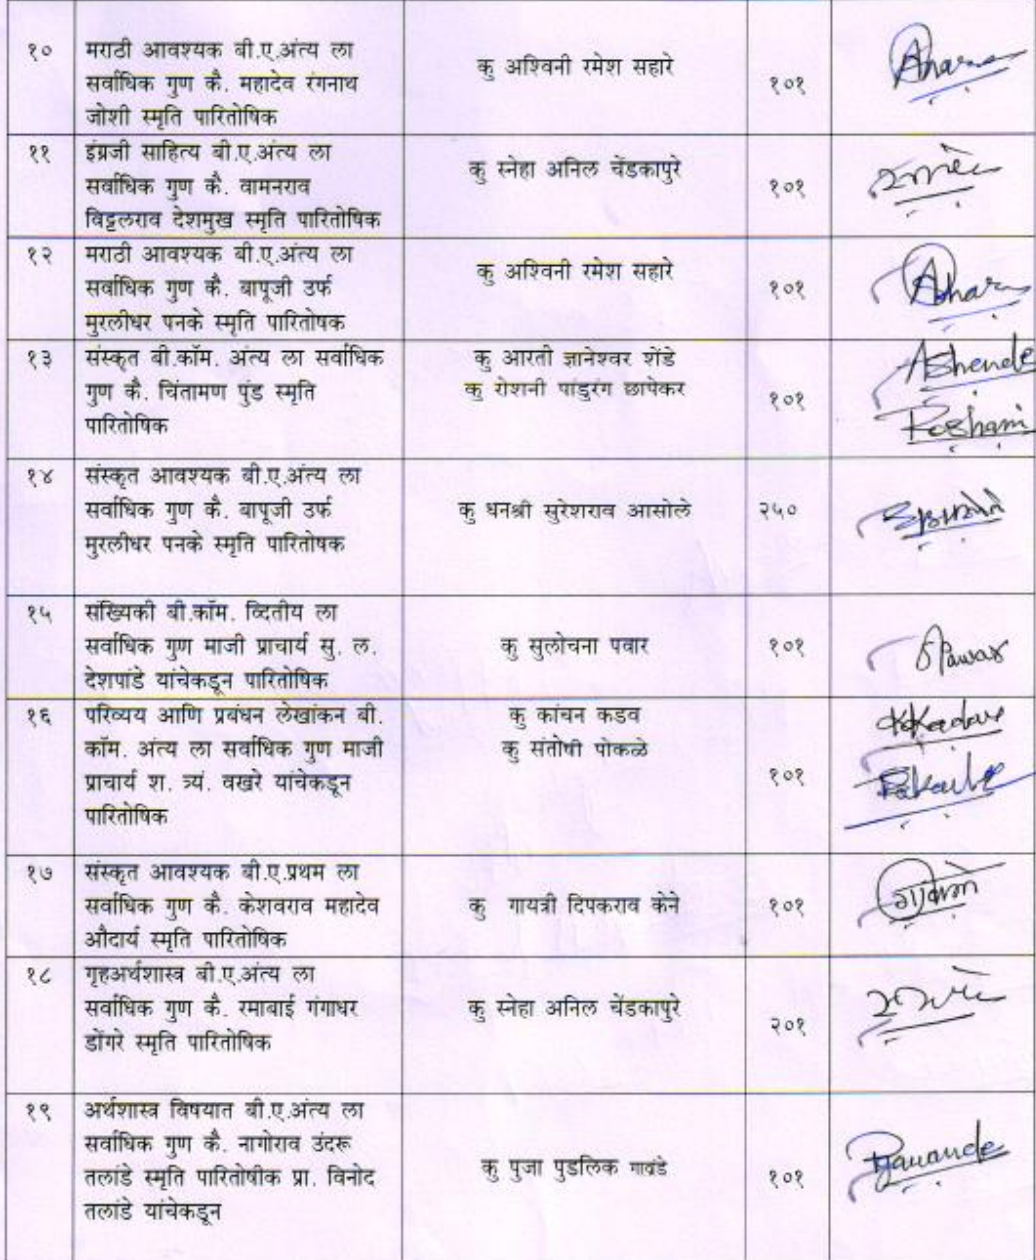 १० मराठी आवश्यक बी.ए.अंत्य ला
सर्वाधिक गुण कै. महादेव रंगनाथ
जोशी स्मृति पारितोषिक
कु अश्विनी रमेश सहारे
१०१
११ इंग्रजी साहित्य बी.ए.अंत्य ला
सर्वाधिक गुण कै. वामनराव
विट्टलराव देशमुख स्मृति पारितोषिक
कु स्नेहा अनिल चेंडकापुरे
१०१
१२ मराठी आवश्यक बी.ए.अंत्य ला
सर्वाधिक गुण कै. बापूजी उर्फ
मुरलीधर पनके स्मृति पारितोषक
कु अश्विनी रमेश सहारे
१०१
१३ संस्कृत बी.कॉम. अंत्य ला सर्वाधिक
गुण कै. चिंतामण पुंड स्मृति
पारितोषिक
कु आरती ज्ञानेश्वर शेंडे
कु रोशनी पांडुरंग छापेकर
१०१
AShende
Roshani
१४ संस्कृत आवश्यक बी.ए.अंत्य ला
सर्वाधिक गुण कै. बापूजी उर्फ
मुरलीधर पनके स्मृति पारितोषक
कु धनश्री सुरेशराव आसोले
२५०
१५ संख्यिकी बी.कॉम. व्दितीय ला
सर्वाधिक गुण माजी प्राचार्य सु. ल.
देशपांडे यांचेकडून पारितोषिक
कु सुलोचना पवार
१०१
SPawar
१६ परिव्यय आणि प्रबंधन लेखांकन बी.
कॉम. अंत्य ला सर्वाधिक गुण माजी
प्राचार्य श. त्र्यं. वखरे यांचेकडून
पारितोषिक
कु कांचन कडव
कु संतोषी पोकळे
१०१
१७ संस्कृत आवश्यक बी.ए.प्रथम ला
सर्वाधिक गुण कै. केशवराव महादेव
औदार्य स्मृति पारितोषिक
कु गायत्री दिपकराव केने
१०१
१८ गृहअर्थशास्त्र बी.ए.अंत्य ला
सर्वाधिक गुण कै. रमाबाई गंगाधर
डोंगरे स्मृति पारितोषिक
कु स्नेहा अनिल चेंडकापुरे
२०१
१९ अर्थशास्त्र विषयात बी.ए.अंत्य ला
सर्वाधिक गुण कै. नागोराव उंदरू
तलांडे स्मृति पारितोषीक प्रा. विनोद
तलांडे यांचेकडून
कु पुजा पुडलिक गावंडे
१०१